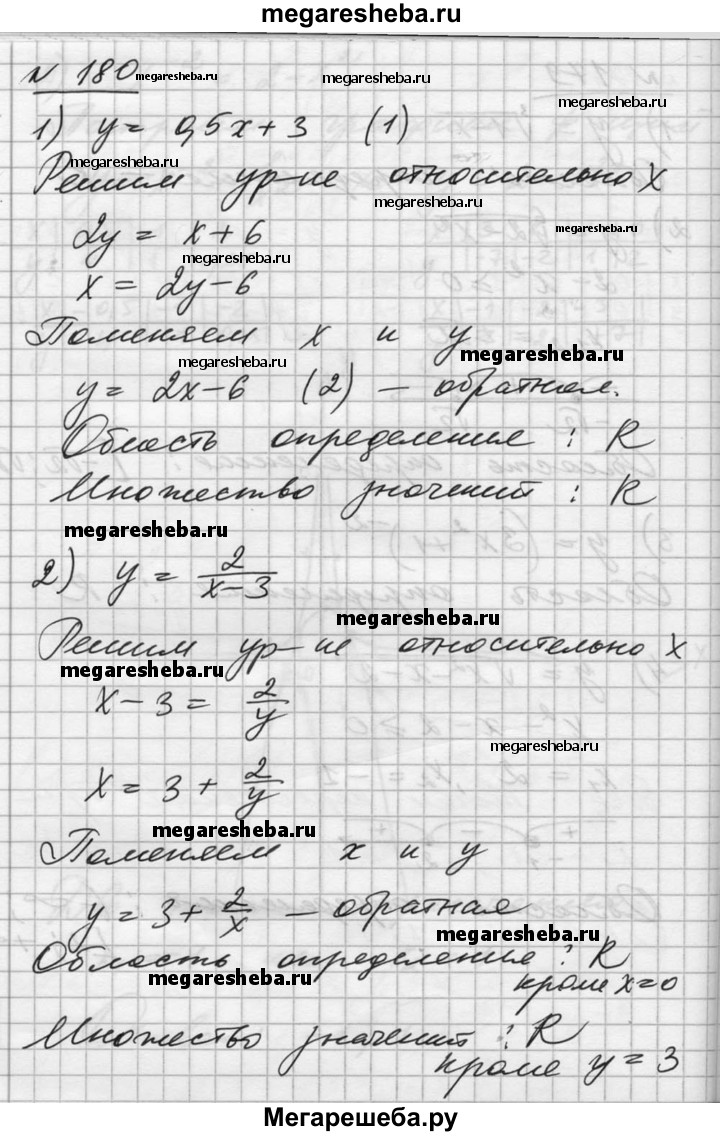 megaresheba.ru
N 180 megaresheba.ru megaresheba.ru
1) y = 0,5x + 3 (1)
megaresheba.ru megaresheba.ru
Решим ур-ие относительно X
megaresheba.ru
2y = x + 6 megaresheba.ru
megaresheba.ru
x = 2y - 6
Поменяем x и y
megaresheba.ru megaresheba.ru
y = 2x - 6 (2) — обратная.
Область определения : R
Множество значений : R
megaresheba.ru
2) y = 2/(x - 3)
megaresheba.ru
Решим ур-ие относительно X
megaresheba.ru
x - 3 = 2/y
megaresheba.ru
x = 3 + 2/y
megaresheba.ru
Поменяем x и y
y = 3 + 2/x — обратная
megaresheba.ru
Область определения : R
megaresheba.ru
кроме x = 0
Множество значений : R
кроме y = 3
Мегарешеба.ру